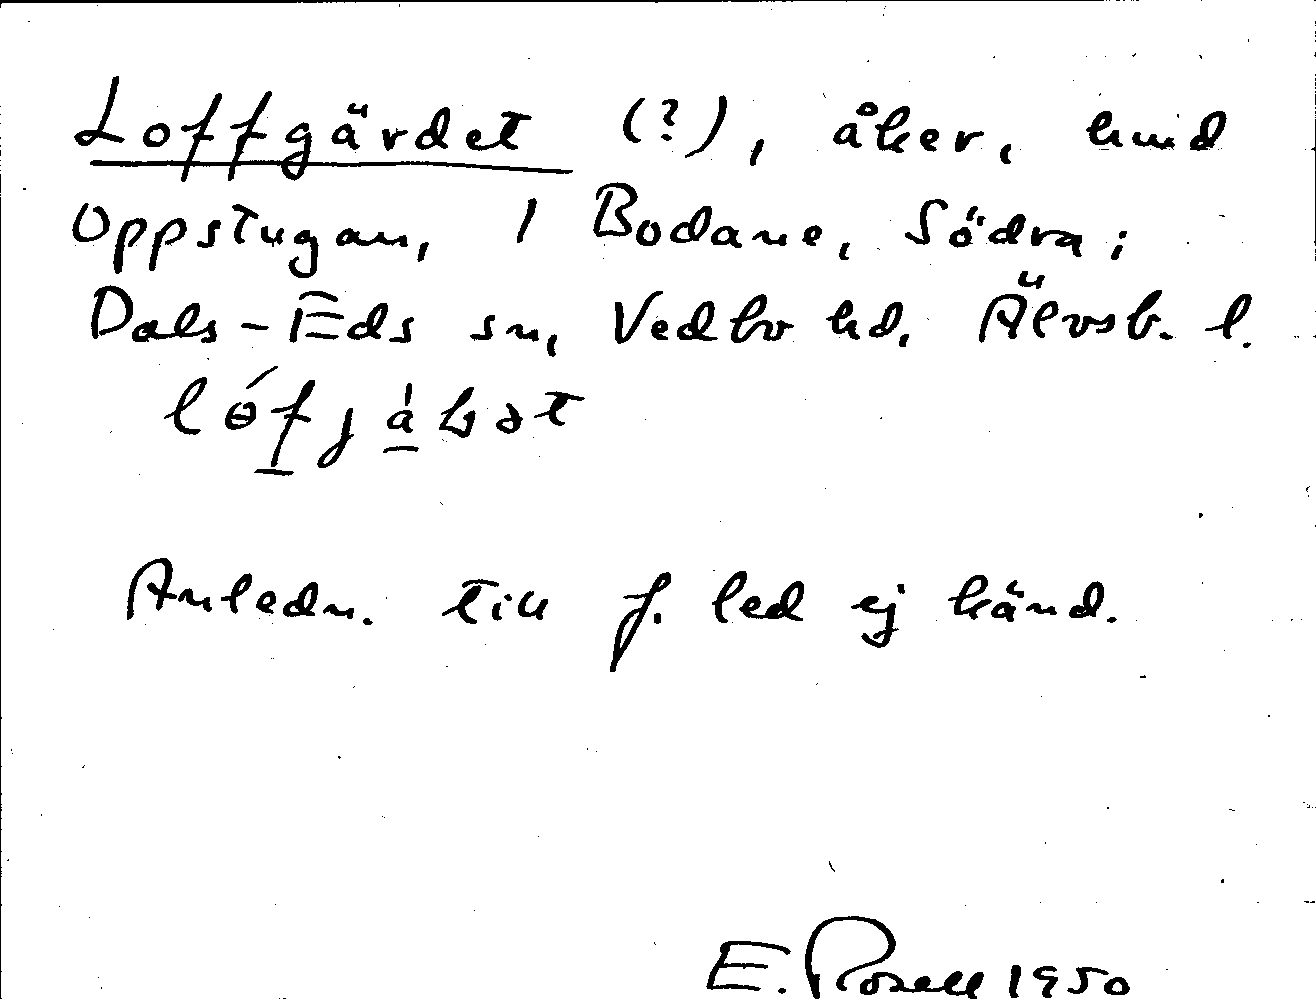 Loffgärdet (?), åker, hmd
Oppstugan, 1 Bodane, Södra;
Dals-Eds sn, Vedbo hd. Älvsb. l.
Anledn. till f. led ej känd.
E. Rosell 1950